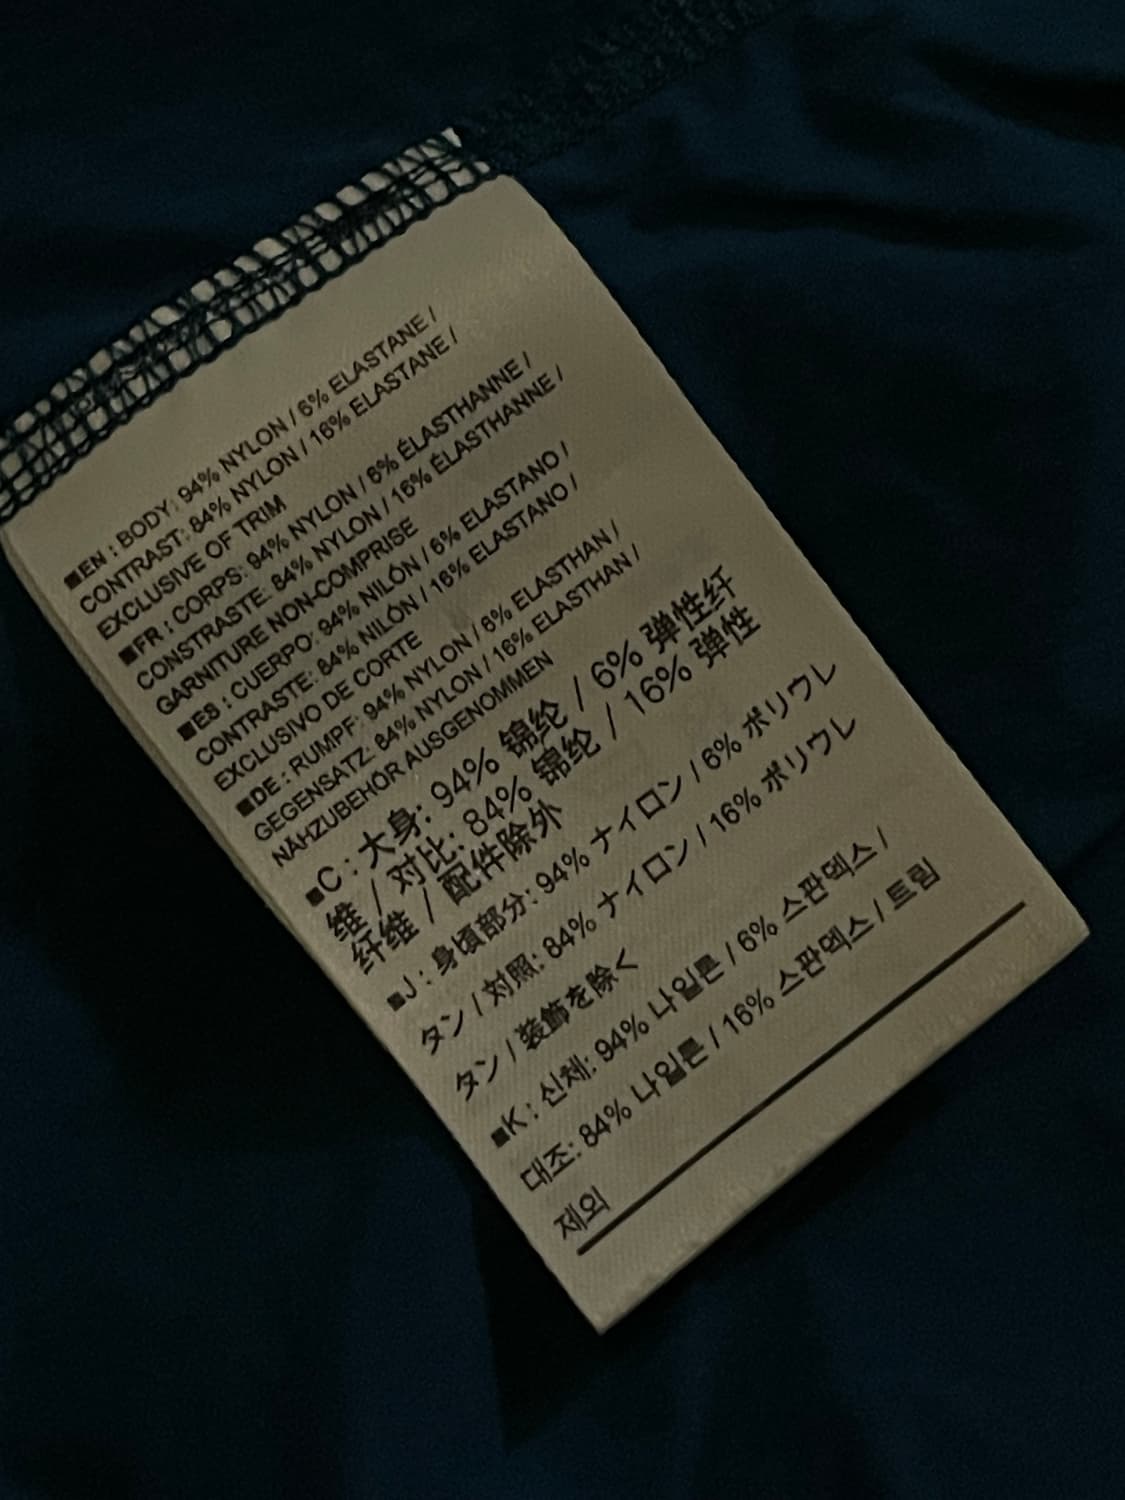 ■EN : BODY: 94% NYLON / 6% ELASTANE /
CONTRAST: 84% NYLON / 16% ELASTANE /
EXCLUSIVE OF TRIM
■FR : CORPS: 94% NYLON / 6% ÉLASTHANNE /
CONSTRASTE: 84% NYLON / 16% ÉLASTHANNE /
GARNITURE NON-COMPRISE
■ES : CUERPO: 94% NILÓN / 6% ELASTANO /
CONTRASTE: 84% NILÓN / 16% ELASTANO /
EXCLUSIVO DE CORTE
■DE : RUMPF: 94% NYLON / 6% ELASTHAN /
GEGENSATZ: 84% NYLON / 16% ELASTHAN /
NÄHZUBEHÖR AUSGENOMMEN
■C : 大身: 94% 锦纶 / 6% 弹性纤
维 / 对比: 84% 锦纶 / 16% 弹性
纤维 / 配件除外
■J : 身頃部分: 94% ナイロン / 6% ポリウレ
タン / 対照: 84% ナイロン / 16% ポリウレ
タン / 装飾を除く
■K : 신체: 94% 나일론 / 6% 스판덱스 /
대조: 84% 나일론 / 16% 스판덱스 / 트림
제외